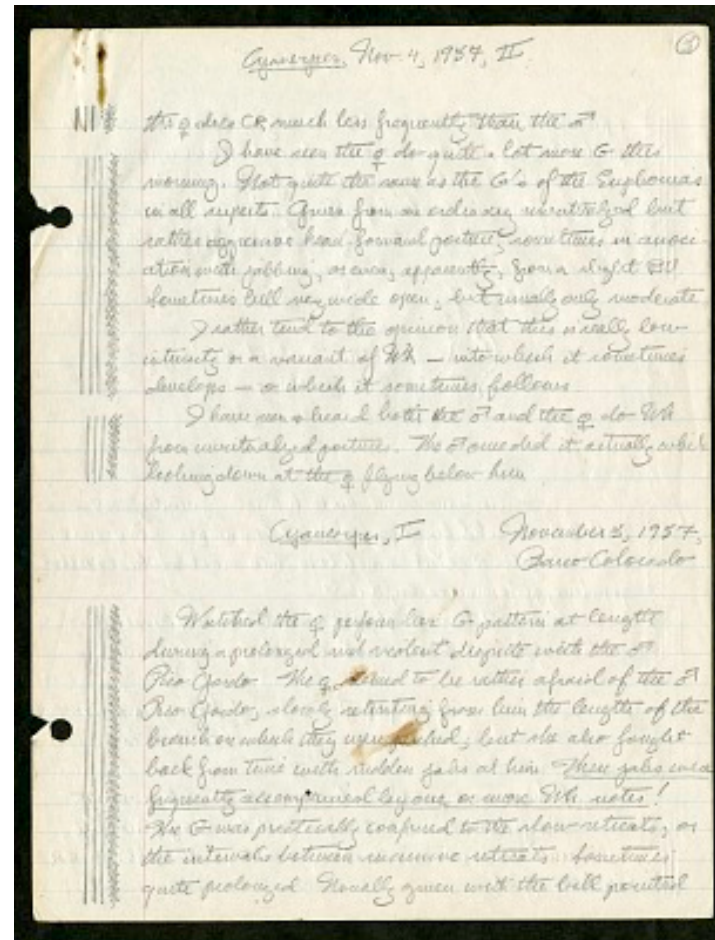 Cyanerpes, Nov. 4, 1957, II
3
the ♀ does CR much less frequently than the ♂
I have seen the ♀ do quite a lot more G this
morning. Not quite the same as the G's of the Euphonias
in all respects. Given from an ordinary unritualized but
rather aggressive head-forward posture, sometimes in associ-
ation with jabbing, or even, apparently, from a slight BU
Sometimes bill very wide open, but usually only moderate
I rather tend to the opinion that this is really low
intensity or a variant of Wh — into which it sometimes
develops — or which it sometimes follows
I have seen & heard both the ♂ and the ♀ do Wh
from unritualized posture. The ♂ once did it actually while
looking down at the ♀ flying below him
Cyanerpes, I
November 5, 1957,
Barro Colorado
Watched the ♀ perform her G pattern at length
during a prolonged not violent dispute with the ♂
Pico Gordo. The ♀ seemed to be rather afraid of the ♂
Pico Gordo, slowly retreating from him the length of the
branch on which they were perched; but she also fought
back from time with sudden jabs at him. These jabs were
frequently accompanied by one or more Wh notes!
The G was practically confined to the slow retreats, or
the intervals between successive retreats. Sometimes
quite prolonged. Usually given with the bill pointed